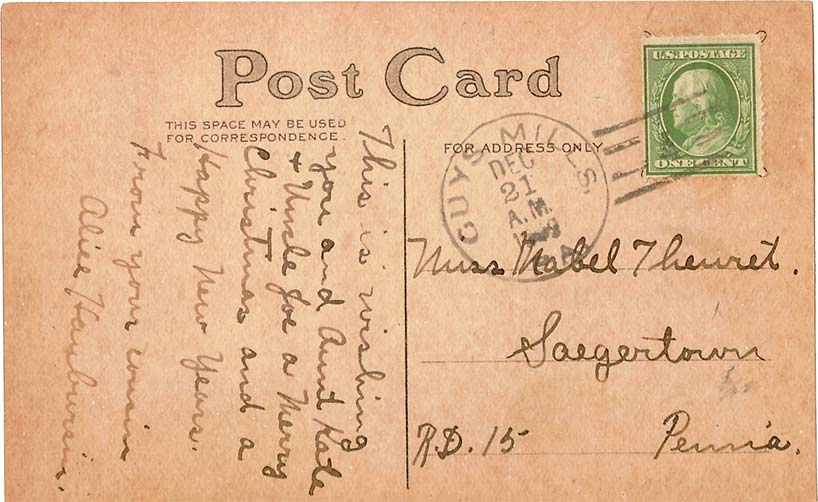 Post Card
THIS SPACE MAY BE USED
FOR CORRESPONDENCE.
FOR ADDRESS ONLY
U.S. POSTAGE
ONE CENT
GUYS MILLS
DEC
21
A.M.
PA.
This is wishing
you and Aunt Kate
+ Uncle Joe a Merry
Christmas and a
Happy New Years.
From your cousin
Alice
Miss Mabel Theuret.
Saegertown
R.D. 15 Penna.